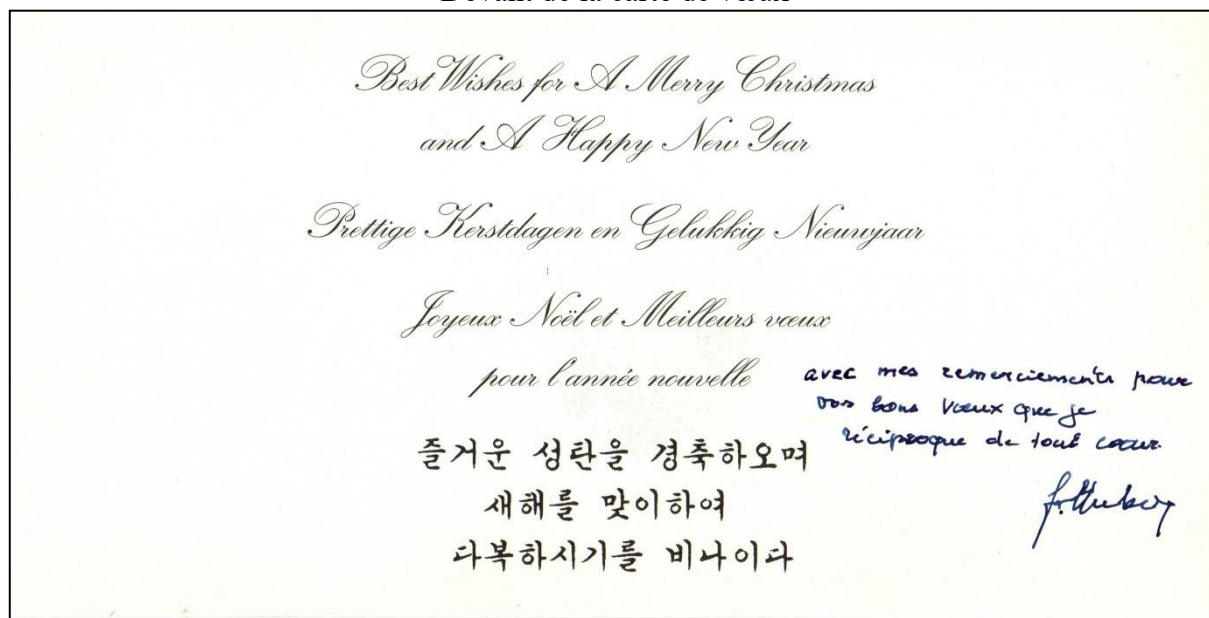 Devant de la carte de vœux
Best Wishes for A Merry Christmas
and A Happy New Year
Prettige Kerstdagen en Gelukkig Nieuwjaar
Joyeux Noël et Meilleurs vœux
pour l'année nouvelle
avec mes remerciements pour
vos bons vœux que je
réciproque de tout cœur.
즐거운 성탄을 경축하오며
새해를 맞이하여
다복하시기를 비나이다